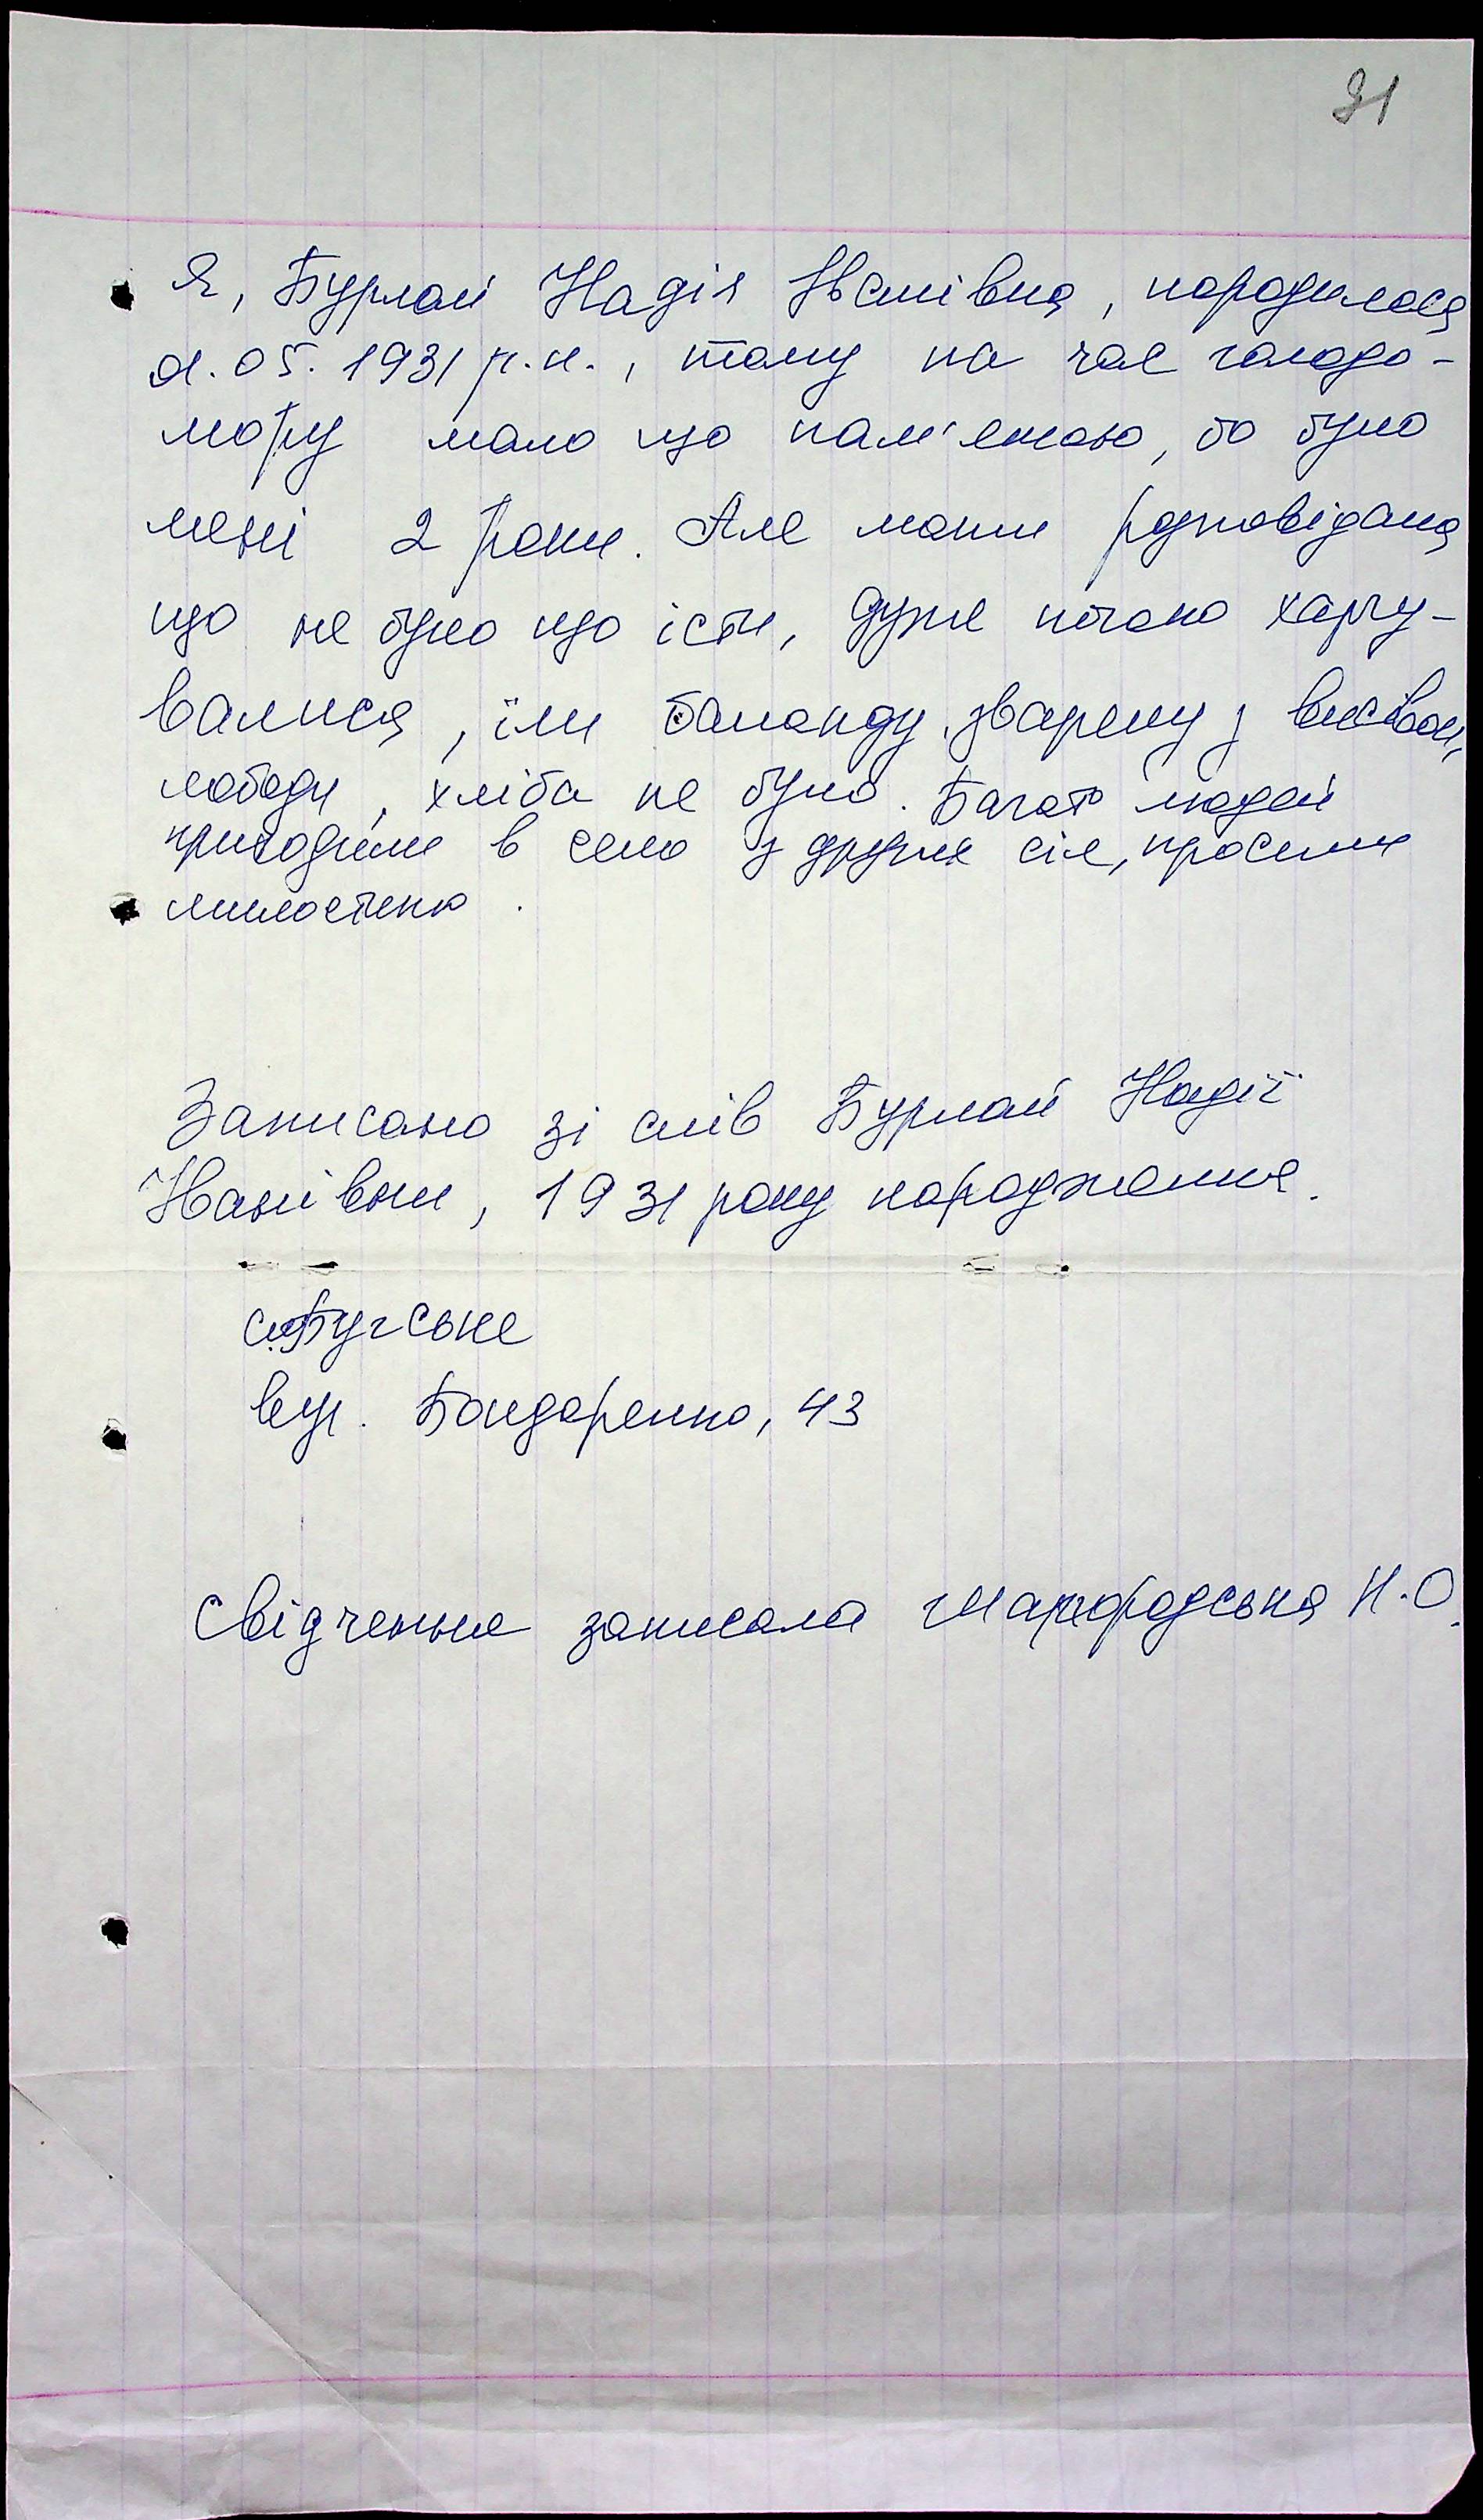 91
Я, Бурлай Надія Іванівна, народилася
21.05.1931 р.н., тому на час голодо-
мору мало що пам'ятаю, бо було
мені 2 роки. Але мати розповідала
що не було що їсти, дуже погано харчу-
валися, їли баланду, зварену з висівок,
лободи, хліба не було. Багато людей
приходили в село з других сіл, просили
милостиню.
Записано зі слів Бурлай Надії
Іванівни, 1931 року народження.
с. Бугське
вул. Бондаренко, 43
Свідчення записала Шаргородська Н.О.